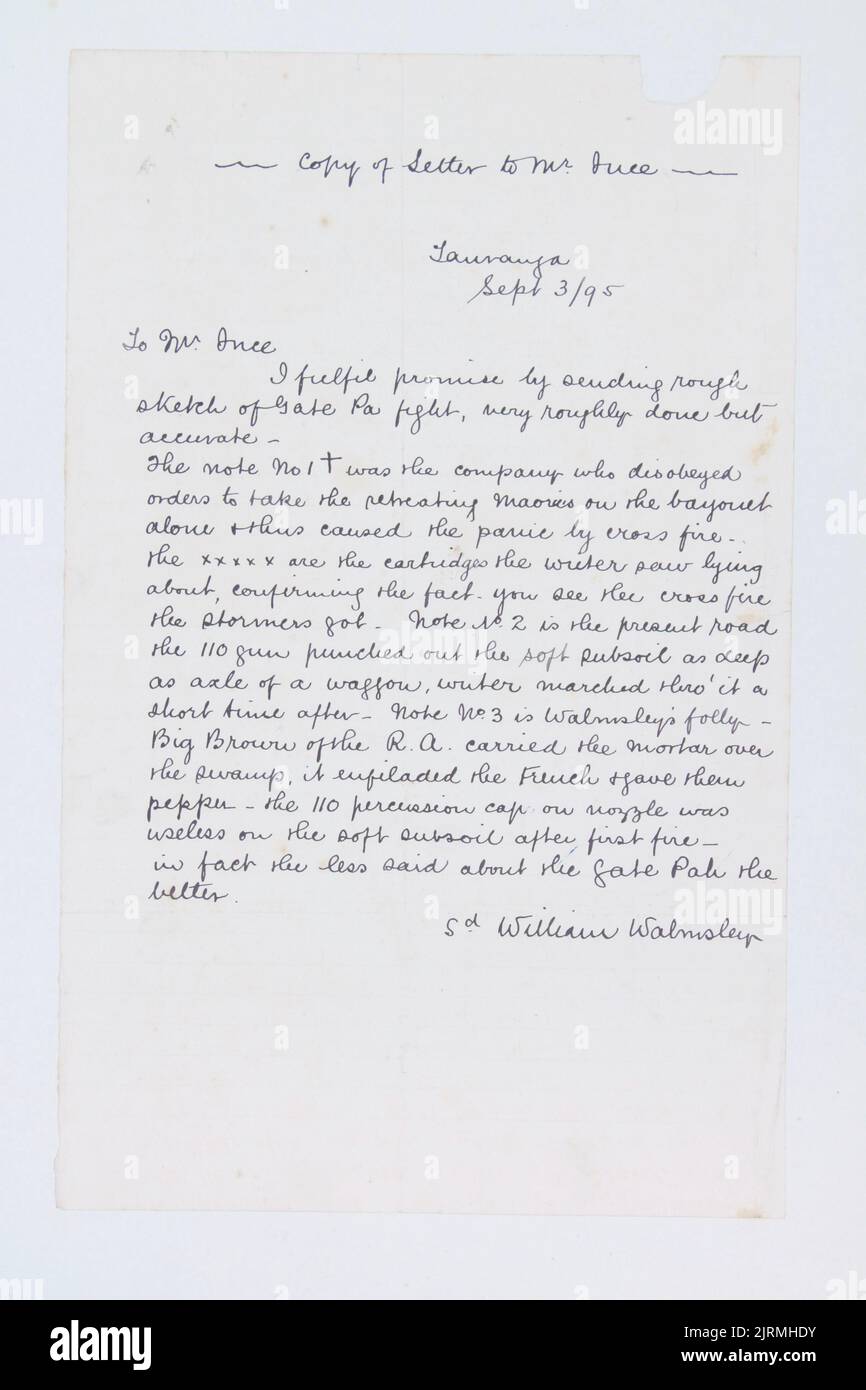 Copy of Letter to Mr. Ince
Tauranga
Sept 3/95
To Mr. Ince
I fulfil promise by sending rough
sketch of Gate Pa fight, very roughly done but
accurate -
The note No 1 † was the company who disobeyed
orders to take the retreating Maories on the bayonet
alone & thus caused the panic by cross fire -
the xxxxx are the cartridges the writer saw lying
about, confirming the fact. you see the cross fire
the stormers got - Note No. 2 is the present road
the 110 gun punched out the soft subsoil as deep
as axle of a waggon, writer marched thro' it a
short time after - Note No. 3 is Walmsley's folly -
Big Brown of the R.A. carried the mortar over
the swamp, it enfiladed the trench & gave them
pepper - the 110 percussion cap on nozzle was
useless on the soft subsoil after first fire -
in fact the less said about the Gate Pah the
better.
Sd William Walmsley
alamy
Image ID: 2JRMHDY
www.alamy.com